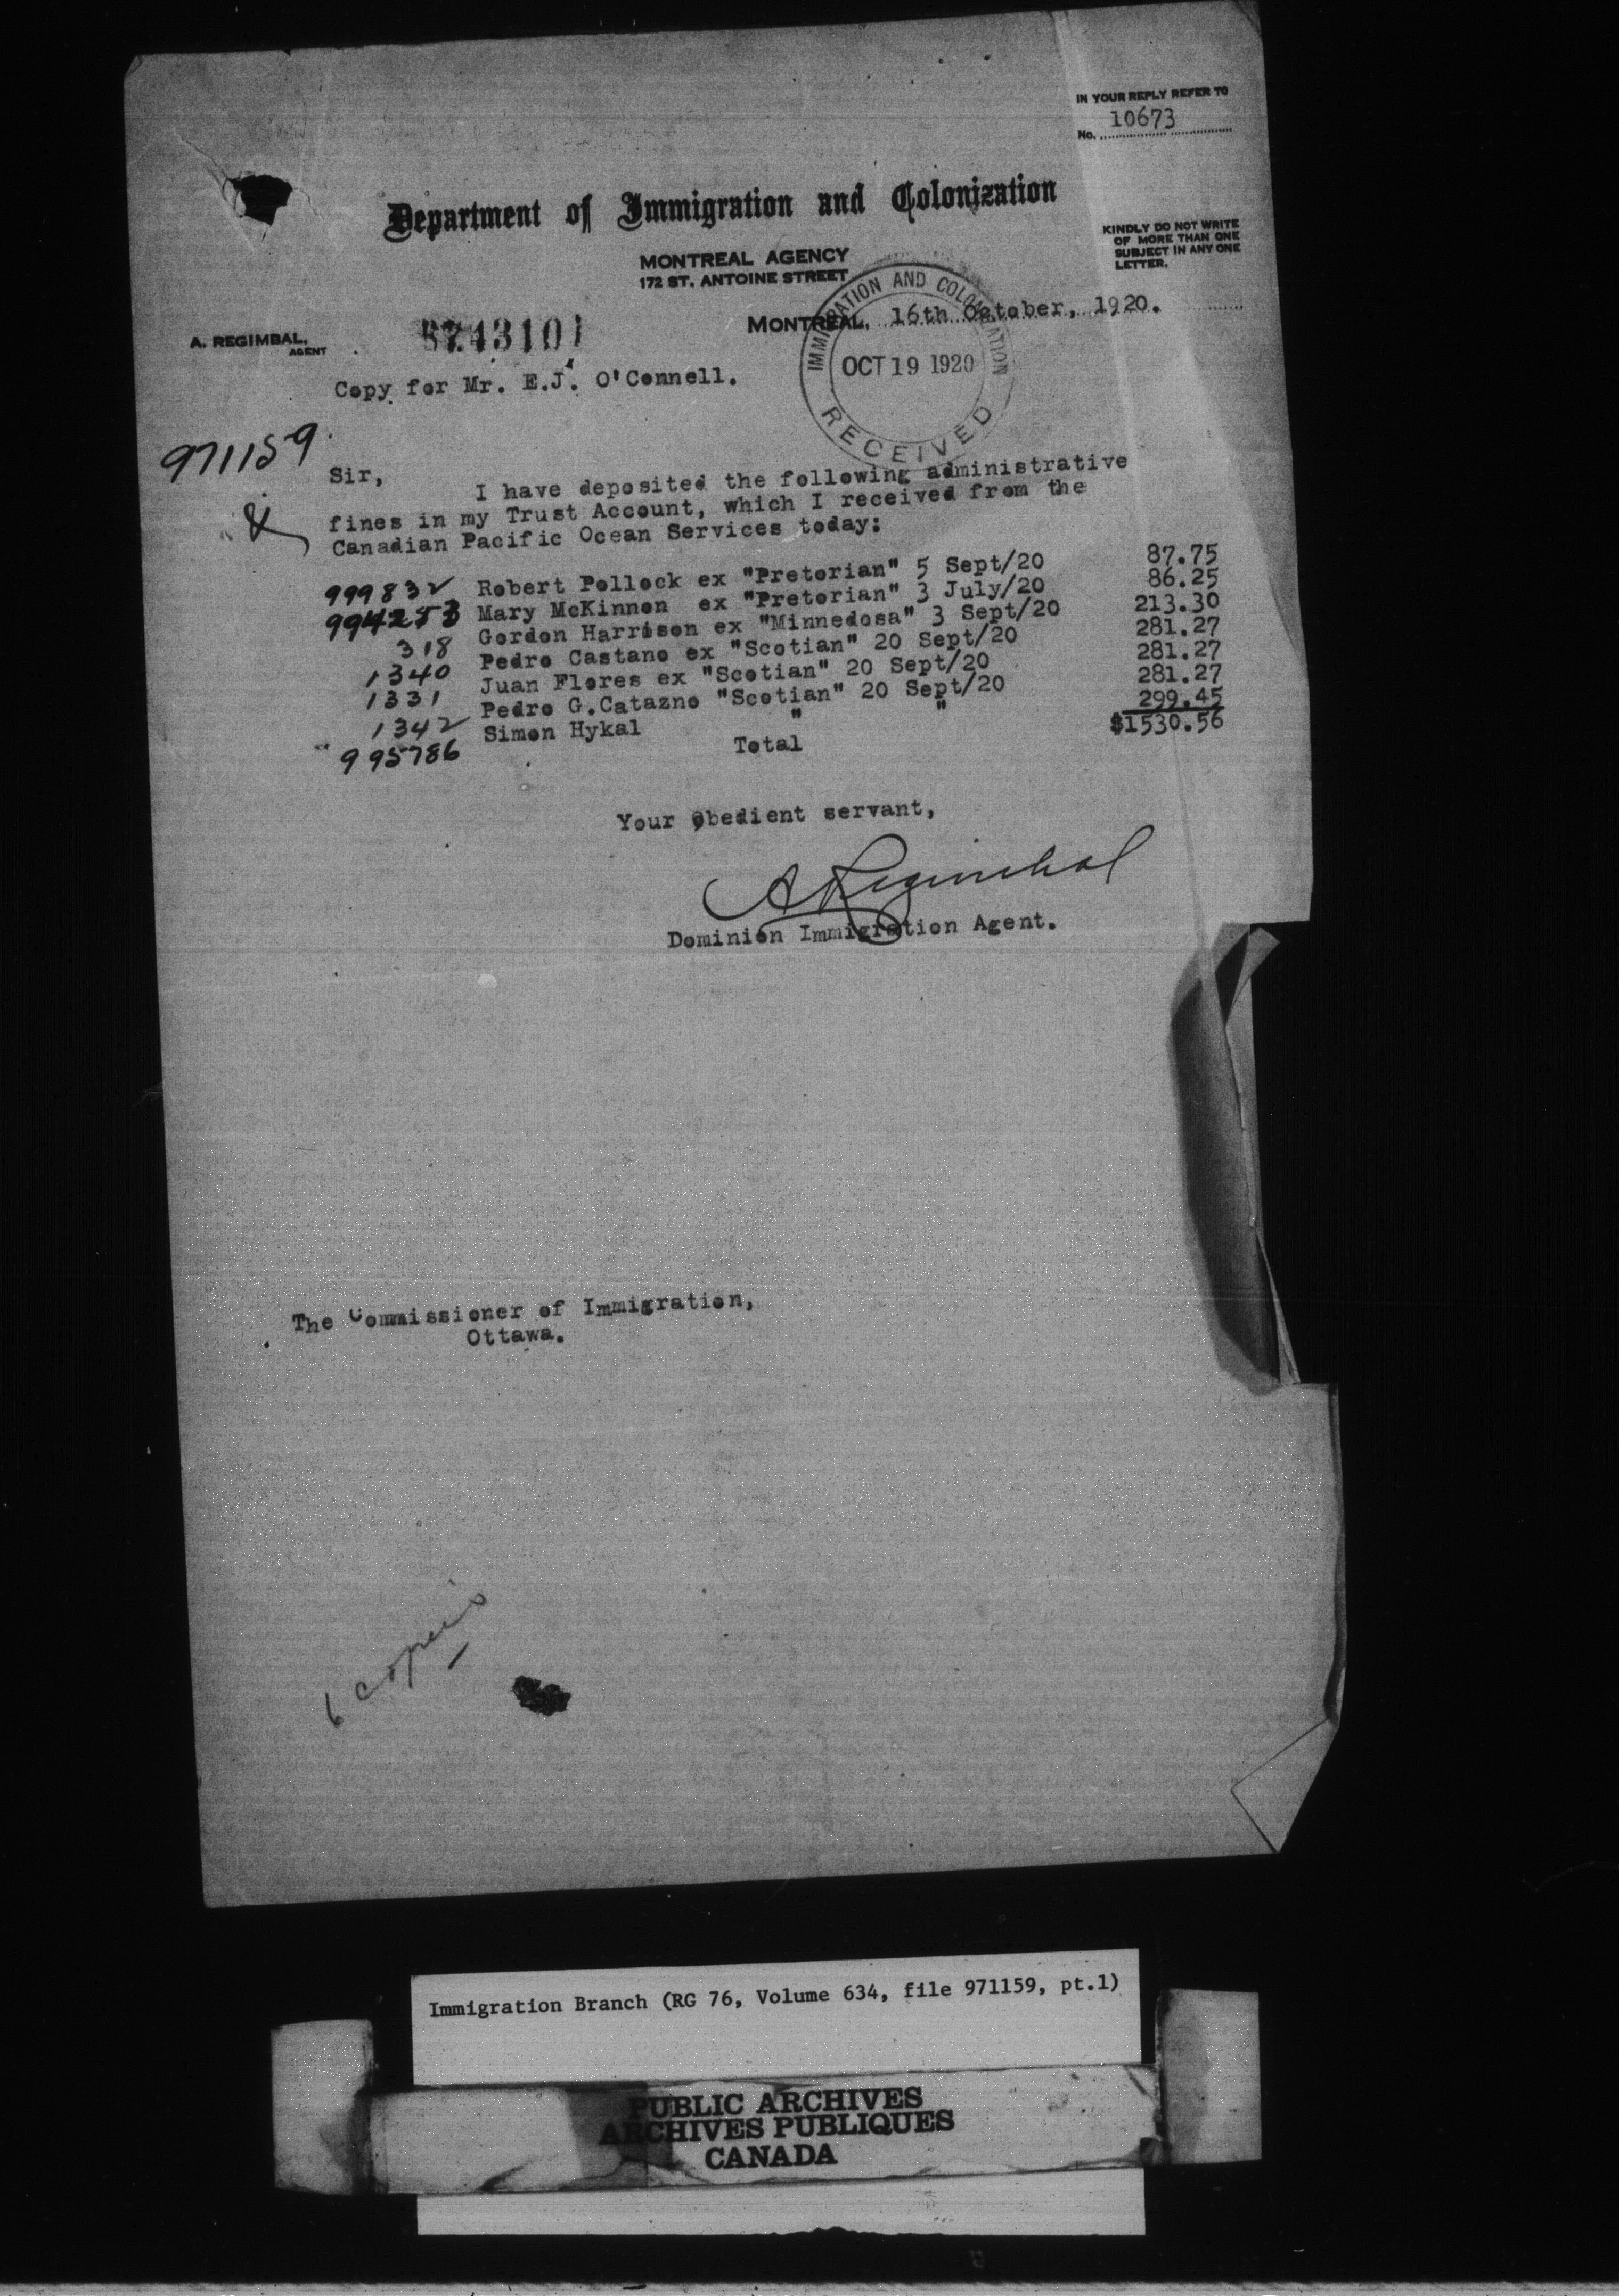 IN YOUR REPLY REFER TO
No. 10673
Department of Immigration and Colonization
MONTREAL AGENCY
172 ST. ANTOINE STREET
KINDLY DO NOT WRITE
OF MORE THAN ONE
SUBJECT IN ANY ONE
LETTER.
A. REGIMBAL,
AGENT
MONTREAL, 16th October, 1920.
IMMIGRATION AND COLONIZATION
OCT 19 1920
RECEIVED
Copy for Mr. E.J. O'Connell.
971159
Sir,
I have deposited the following administrative
fines in my Trust Account, which I received from the
Canadian Pacific Ocean Services today:
999832 Robert Pollock ex "Pretorian" 5 Sept/20 87.75
994253 Mary McKinnon ex "Pretorian" 3 July/20 86.25
318 Gordon Harrison ex "Minnedosa" 3 Sept/20 213.30
1340 Pedro Castano ex "Scotian" 20 Sept/20 281.27
1331 Juan Flores ex "Scotian" 20 Sept/20 281.27
1342 Pedro G.Catazno "Scotian" 20 Sept/20 281.27
995786 Simon Hykal " " 299.45
Total $1530.56
Your obedient servant,
A Regimbal
Dominion Immigration Agent.
The Commissioner of Immigration,
Ottawa.
6 copies
Immigration Branch (RG 76, Volume 634, file 971159, pt.1)
PUBLIC ARCHIVES
ARCHIVES PUBLIQUES
CANADA